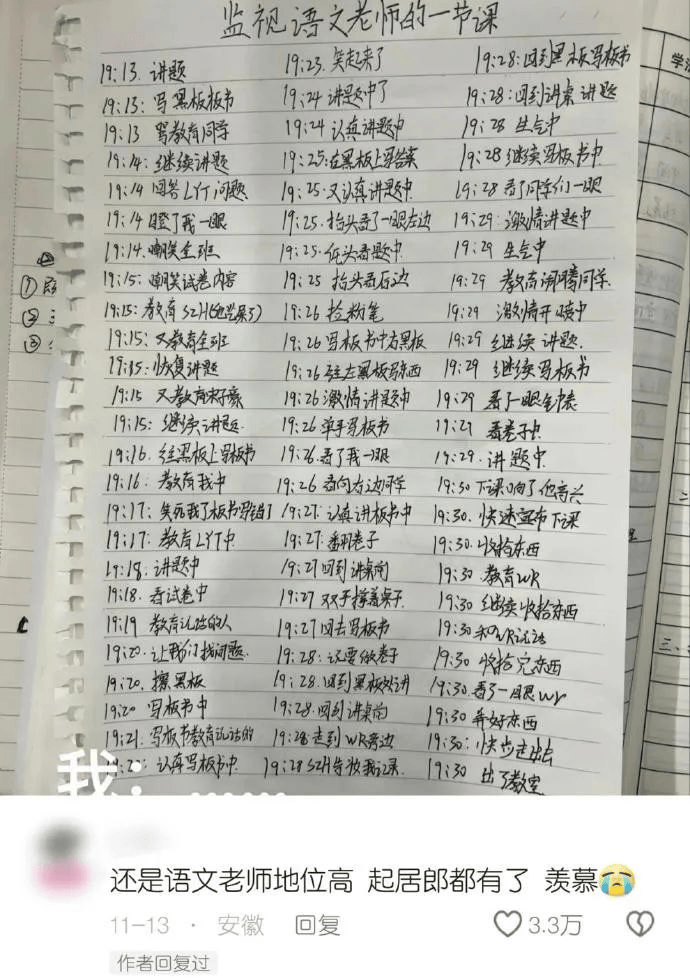 监视语文老师的一节课
19:13. 讲题
19:13: 写黑板板书
19:13 骂教育同学
19:14: 继续讲题
19:14 回答LYT问题
19:14 瞪了我一眼
19:14. 嘲笑全班
19:15: 嘲笑试卷内容
19:15: 教育SZH(他哭了)
19:15: 又教育全班
19:15: 恢复讲题
19:15 又教育
19:15: 继续讲题
19:16. 往黑板上写板书
19:16. 教育我中
19:17: 笑死我了板书写错了
19:17: 教育LYT中
19:18. 讲题中
19:18. 看试卷中
19:19 教育说话的人
19:20. 让我们找问题
19:20. 擦黑板
19:20 写板书中
19:21. 写板书教育说话的
认真写板书中
19:23. 笑起来了
19:24 讲题中了
19:24 认真讲题中
19:25: 在黑板上写答案
19:25: 又认真讲题中
19:25. 抬头看了一眼左边
19:25: 低头看题中
19:25 抬头看右边
19:26 捡粉笔
19:26 写板书中右黑板
19:26 往左黑板写东西
19:26 激情讲题中
19:26 单手写板书
19:26. 看了我一眼
19:26 看向右边同学
19:27. 认真讲板书中
19:27. 翻卷子
19:27 回到讲桌前
19:27 双手撑着桌子
19:27 回去写板书
19:28: 还要做卷子
19:28. 回到黑板处讲
19:28. 回到讲桌前
19:28 走到WR旁边
19:28 SZH夸我记录
19:28: 回到黑板写板书
19:28: 回到讲桌讲题
19:28 生气中
19:28 继续写板书中
19:28 看了同学们一眼
19:29: 激情讲题中
19:29 生气中
19:29 教育闹腾同学
19:29 激情开唛中
19:29 继续讲题.
19:29 继续写板书
19:29 看了一眼钟表
19:29 看卷子中
19:29. 讲题中
19:30 下课响了他高兴
19:30. 快速宣布下课
19:30. 收拾东西
19:30 教育WR
19:30 继续收拾东西
19:30 和WR说话
19:30 收拾完东西
19:30. 看了一眼WR
19:30 弄好东西
19:30: 快步走出去
19:30 出了教室
我: ……
还是语文老师地位高 起居郎都有了 羡慕😭
11-13 · 安徽 回复 3.3万
作者回复过